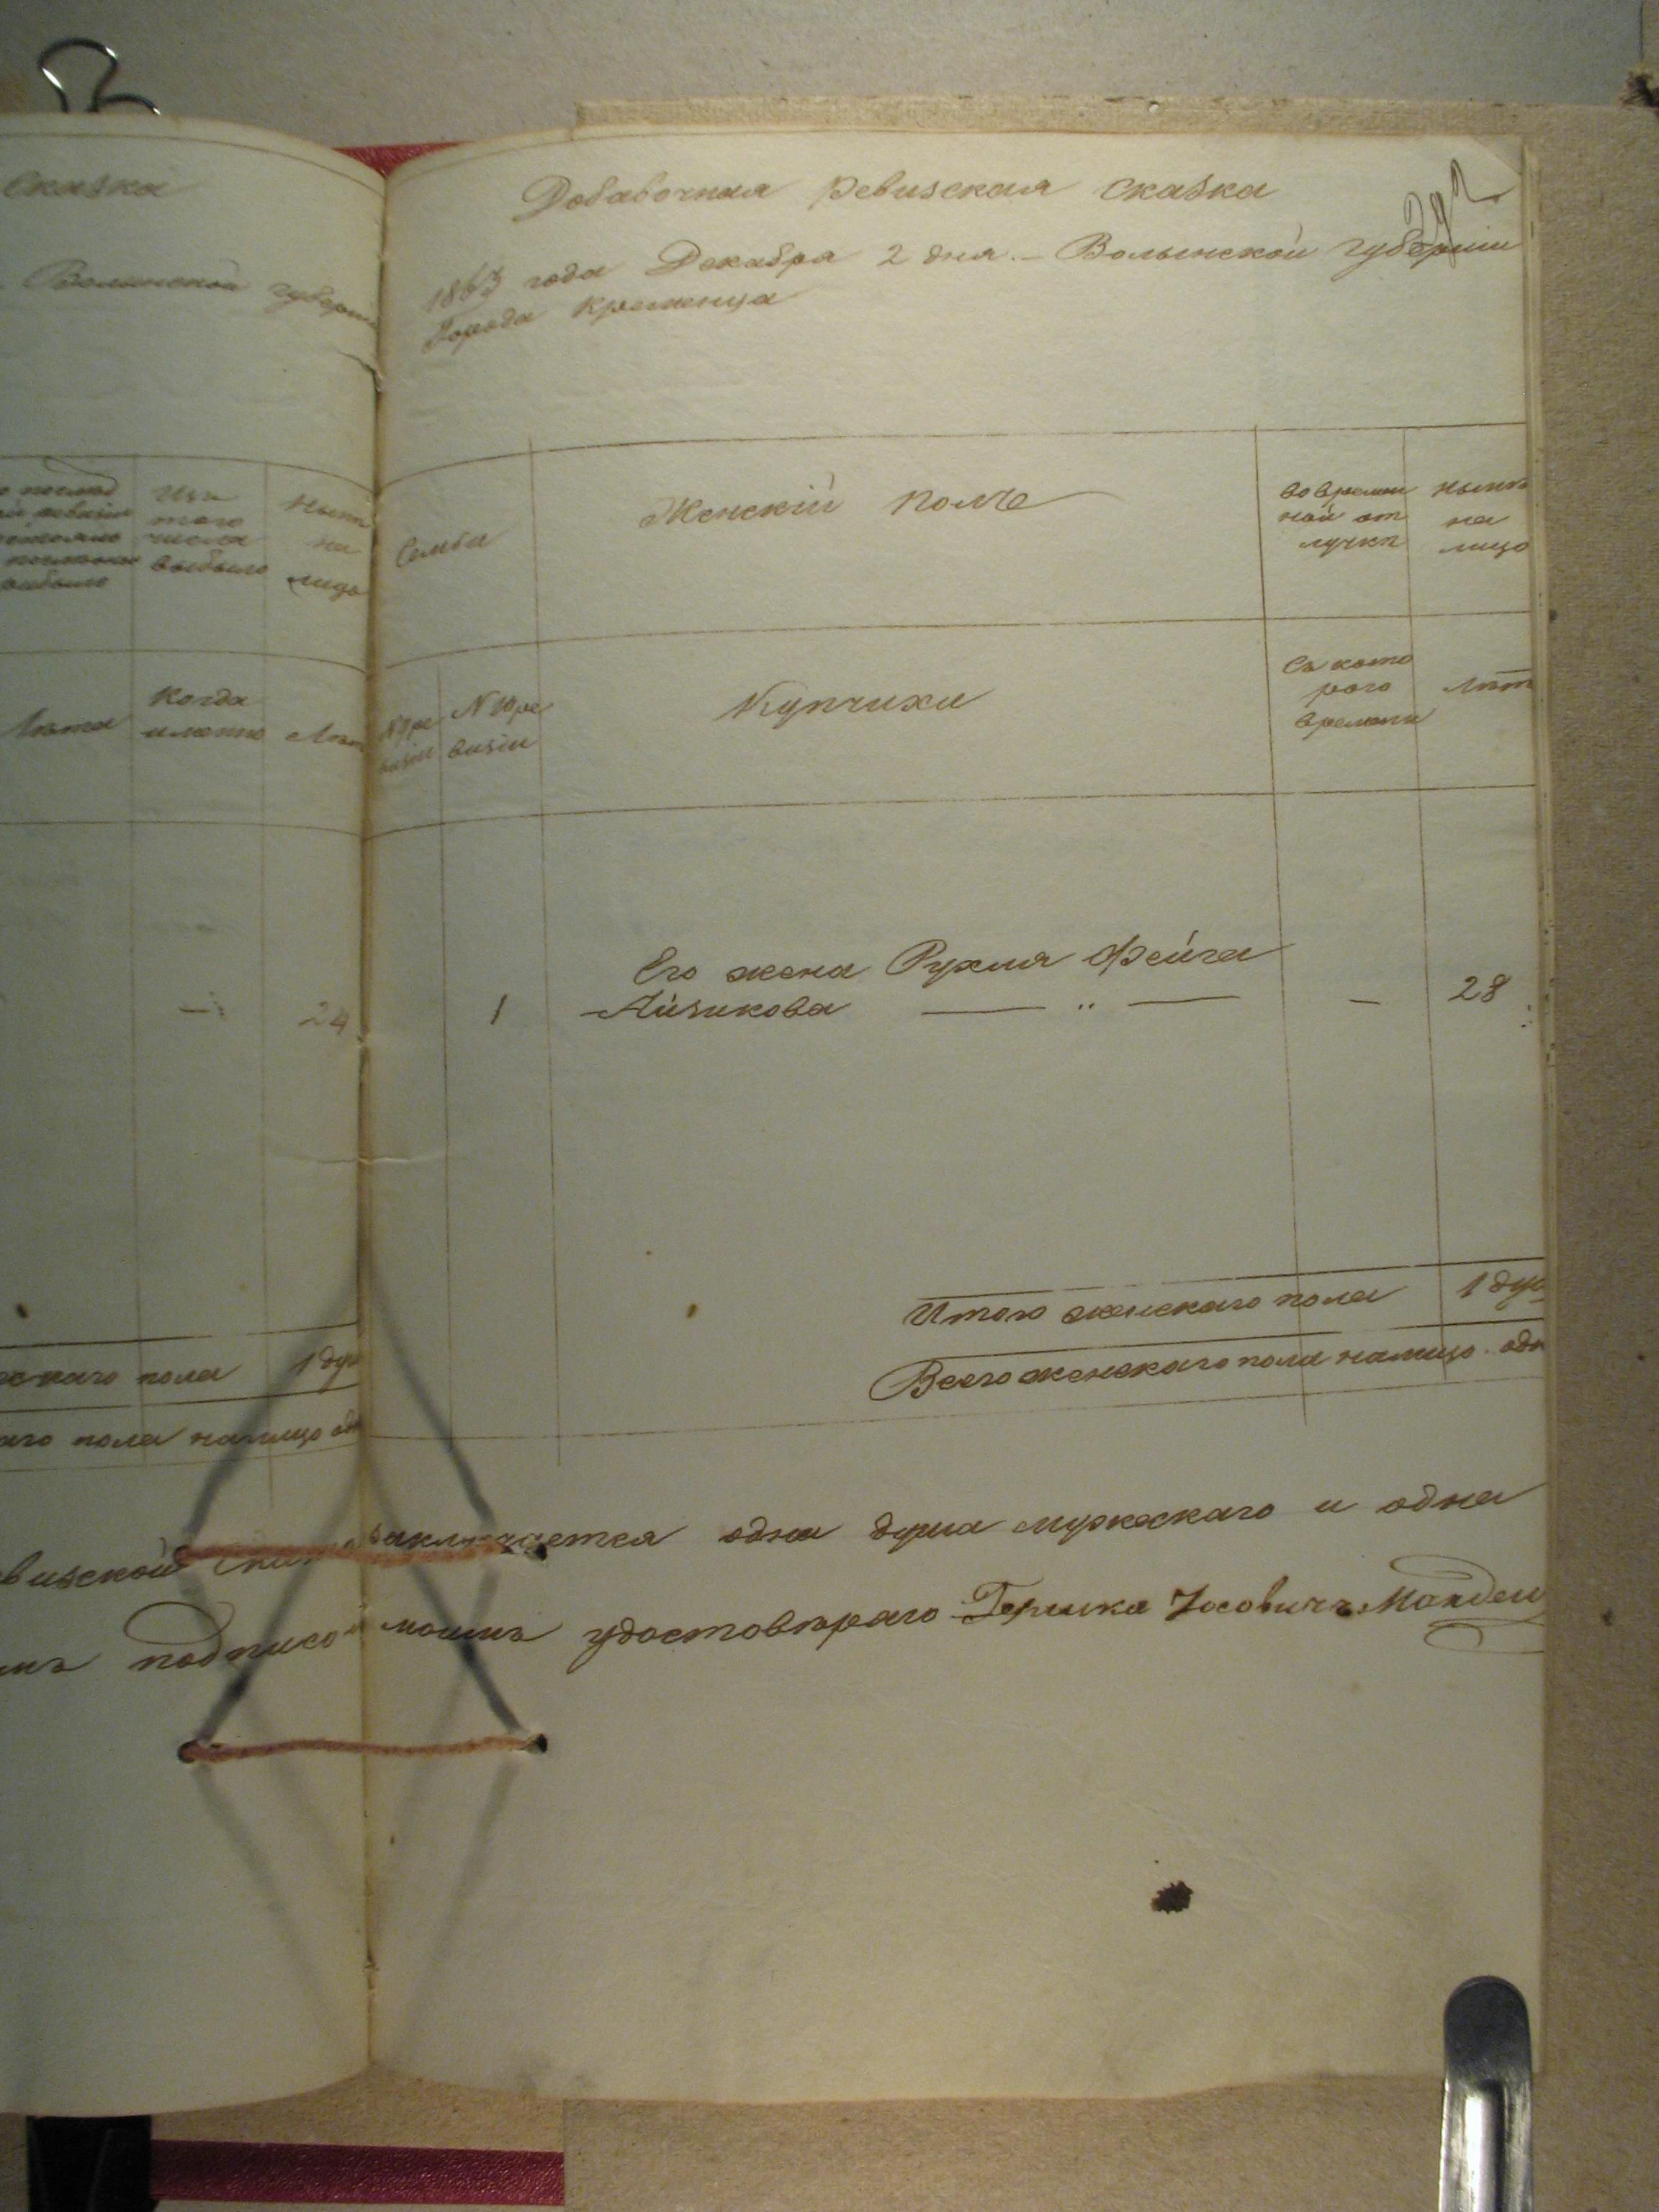 Сказка
Волынской Губерніи
Изъ
того
числа
выбыло
Нынѣ
на
лицо
Лѣта
Когда
именно
Лѣта
24
пола 1 душ
аго пола налицо од
Добавочная Ревизская Сказка
1863 года Декабря 2 дня. – Волынской Губерніи
Города Кременца
Семьи
Женскій Полъ
Во времен
ной от
лучкѣ
Нынѣ
на
лицо
№ 9 ре
визіи
№ 10 ре
визіи
Купчихи
Съ кото
раго
времени
Лѣт
Его жена Рухля Фейга
1 Айзикова — „ — — 28
Итого женскаго пола 1 душ
Всего женскаго пола налицо одн
визской Сказкѣ заключается одна душа мужескаго и одна
подписомъ моимъ удостовѣряю Гершка Іосовичъ Мандел